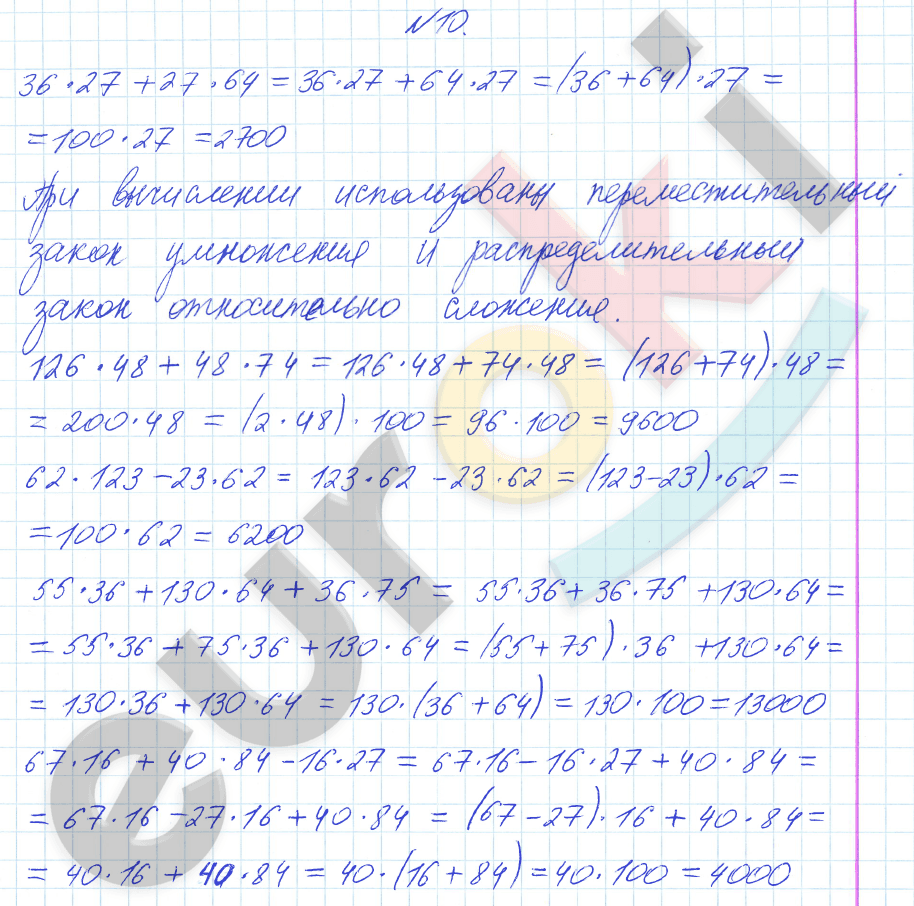 №10.
36·27+27·64=36·27+64·27=(36+64)·27=
=100·27=2700
При вычислении использованы переместительный
закон умножения и распределительный
закон относительно сложения.
126·48+48·74=126·48+74·48=(126+74)·48=
=200·48=(2·48)·100=96·100=9600
62·123-23·62=123·62-23·62=(123-23)·62=
=100·62=6200
55·36+130·64+36·75=55·36+36·75+130·64=
=55·36+75·36+130·64=(55+75)·36+130·64=
=130·36+130·64=130·(36+64)=130·100=13000
67·16+40·84-16·27=67·16-16·27+40·84=
=67·16-27·16+40·84=(67-27)·16+40·84=
=40·16+40·84=40·(16+84)=40·100=4000
euroki